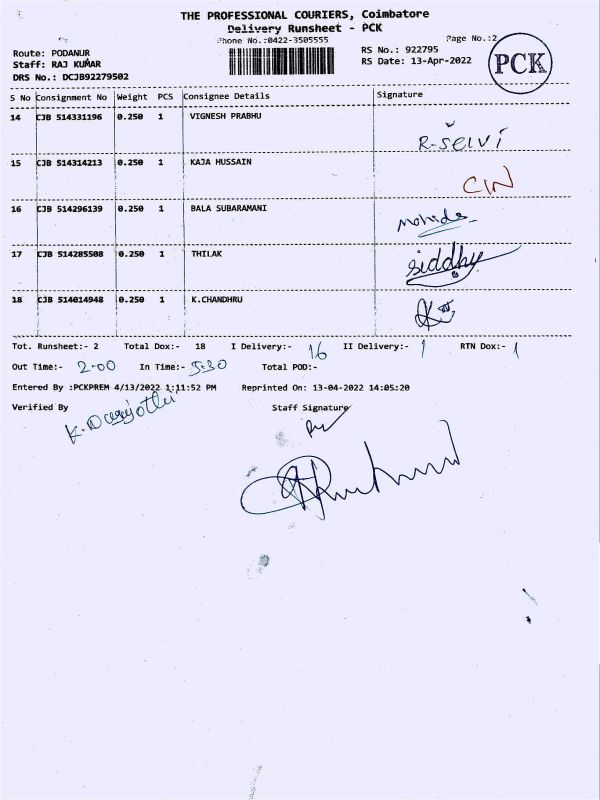 THE PROFESSIONAL COURIERS, Coimbatore
Delivery Runsheet - PCK
Phone No.:0422-3505555
Page No.:2
Route: PODANUR
RS No.: 922795
Staff: RAJ KUMAR
RS Date: 13-Apr-2022
PCK
DRS No.: DCJB92279502
S No Consignment No Weight PCS Consignee Details Signature
14 CJB 514331196 0.250 1 VIGNESH PRABHU R-Selvi
15 CJB 514314213 0.250 1 KAJA HUSSAIN CIN
16 CJB 514296139 0.250 1 BALA SUBARAMANI
17 CJB 514285508 0.250 1 THILAK siddhy
18 CJB 514014948 0.250 1 K.CHANDHRU
Tot. Runsheet:- 2 Total Dox:- 18 I Delivery:- 16 II Delivery:- 1 RTN Dox:- 1
Out Time:- 2-00 In Time:- 5:30 Total POD:-
Entered By :PCKPREM 4/13/2022 1:11:52 PM Reprinted On: 13-04-2022 14:05:20
Verified By Staff Signature